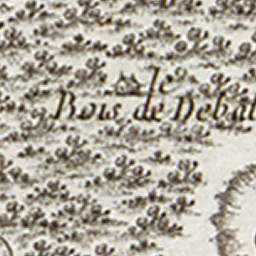 le
Bois de Debat